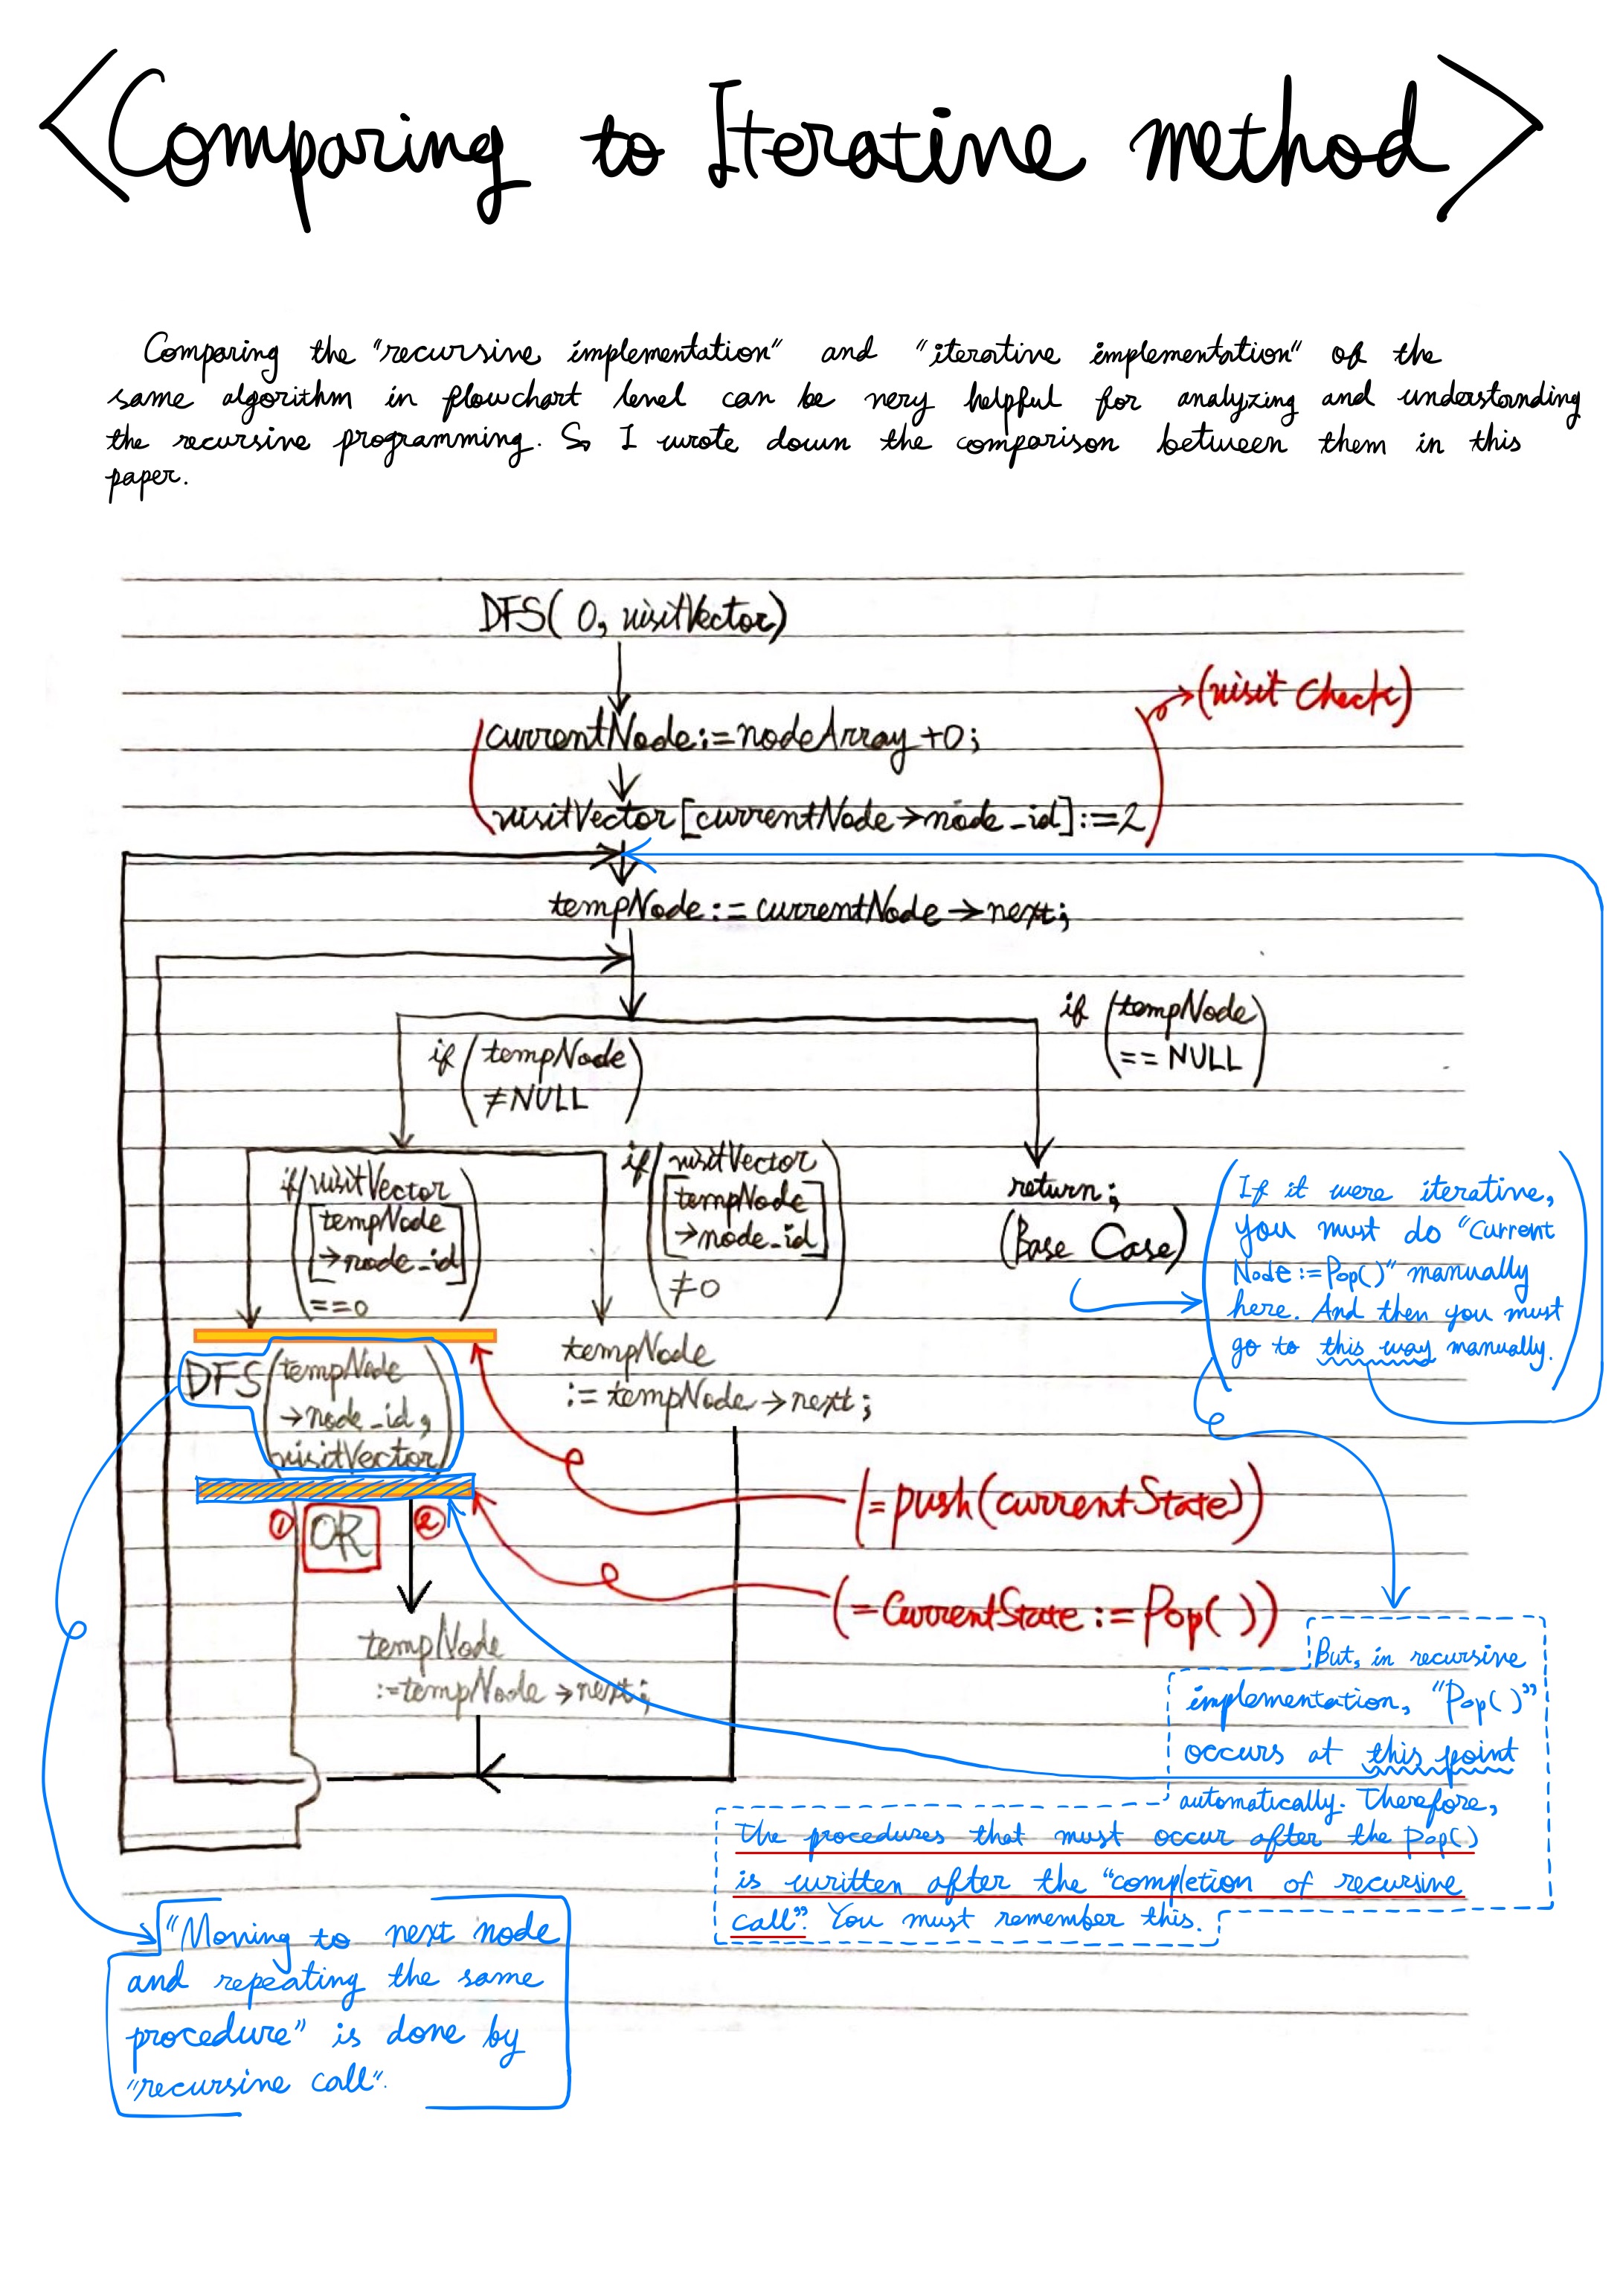 <Comparing to Iterative method>
Comparing the "recursive implementation" and "iterative implementation" of the
same algorithm in flowchart level can be very helpful for analyzing and understanding
the recursive programming. So I wrote down the comparison between them in this
paper.
DFS( 0, visitVector)
(visit Check)
(currentNode:=nodeArray+0;
visitVector[currentNode→node_id]:=2)
tempNode:=currentNode→next;
if (tempNode
==NULL)
if (tempNode
≠NULL)
if (visitVector
[tempNode
→node_id]
==0)
if (visitVector
[tempNode
→node_id]
≠0)
return;
(Base Case)
(If it were iterative,
you must do "Current
Node:=Pop()" manually
here. And then you must
go to this way manually.)
DFS(tempNode
→node_id,
visitVector)
tempNode
:=tempNode→next;
(=push(currentState))
① OR ②
(=CurrentState:=Pop( ))
tempNode
:=tempNode→next;
But, in recursive
implementation, "Pop( )"
occurs at this point
automatically. Therefore,
the procedures that must occur after the Pop()
is written after the "completion of recursive
call". You must remember this.
"Moving to next node
and repeating the same
procedure" is done by
"recursive call".